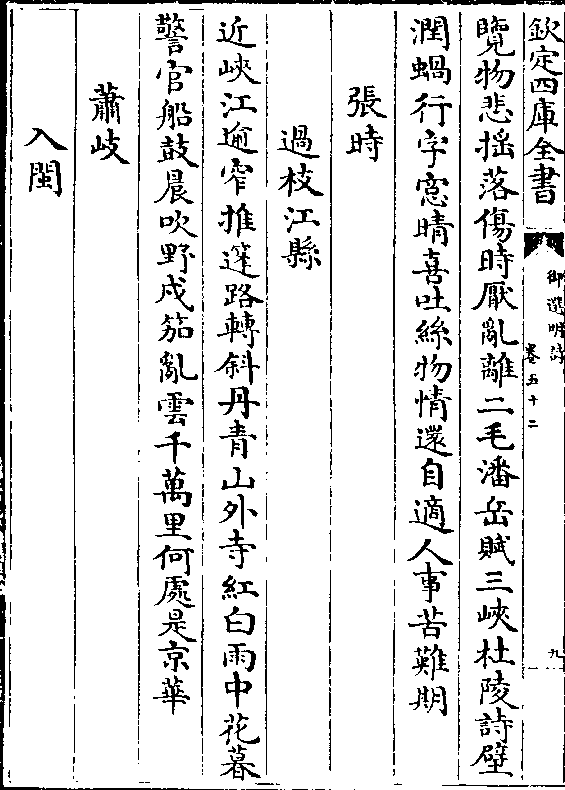 欽定四庫全書
御選明詩
卷五十二
九
覽物悲揺落傷時厭亂離二毛潘岳賦三峽杜陵詩壁
潤蝸行字窓晴喜吐絲物情還自適人事苦難期
張時
過枝江縣
近峽江逾窄推篷路轉斜丹青山外寺紅白雨中花暮
警官船鼓晨吹野戍笳亂雲千萬里何處是京華
蕭岐
入閩